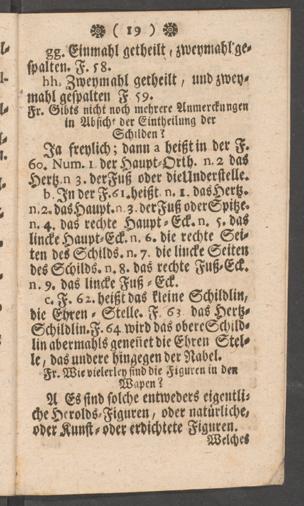 ( 19 )
gg. Einmahl getheilt, zweymahl ge-
spalten. F. 58.
hh. Zweymahl getheilt, und zwey-
mahl gespalten F 59.
Fr. Gibts nicht noch mehrere Anmerckungen
in Absicht der Eintheilung der
Schilden?
Ja freylich; dann a heißt in der F.
60. Num. 1. der Haupt-Orth. n. 2 das
Hertz. n 3. der Fuß oder die Understelle.
b. In der F. 61. heißt n. 1. das Hertz.
n. 2. das Haupt. n. 3. der Fuß oder Spitze.
n. 4. das rechte Haupt-Eck. n. 5. das
lincke Haupt-Eck. n. 6. die rechte Sei-
ten des Schilds. n. 7. die lincke Seiten
des Schilds. n. 8. das rechte Fuß-Eck.
n. 9. das lincke Fuß-Eck.
c. F. 62. heißt das kleine Schildlin,
die Ehren-Stelle. F. 63. das Hertz-
Schildlin. F. 64 wird das obere Schild-
lin abermahls geneñet die Ehren Stel-
le, das undere hingegen der Nabel.
Fr. Wie vielerley sind die Figuren in den
Wapen?
A Es sind solche entweders eigentli-
che Herolds-Figuren, oder natürliche,
oder Kunst- oder erdichtete Figuren.
Welches